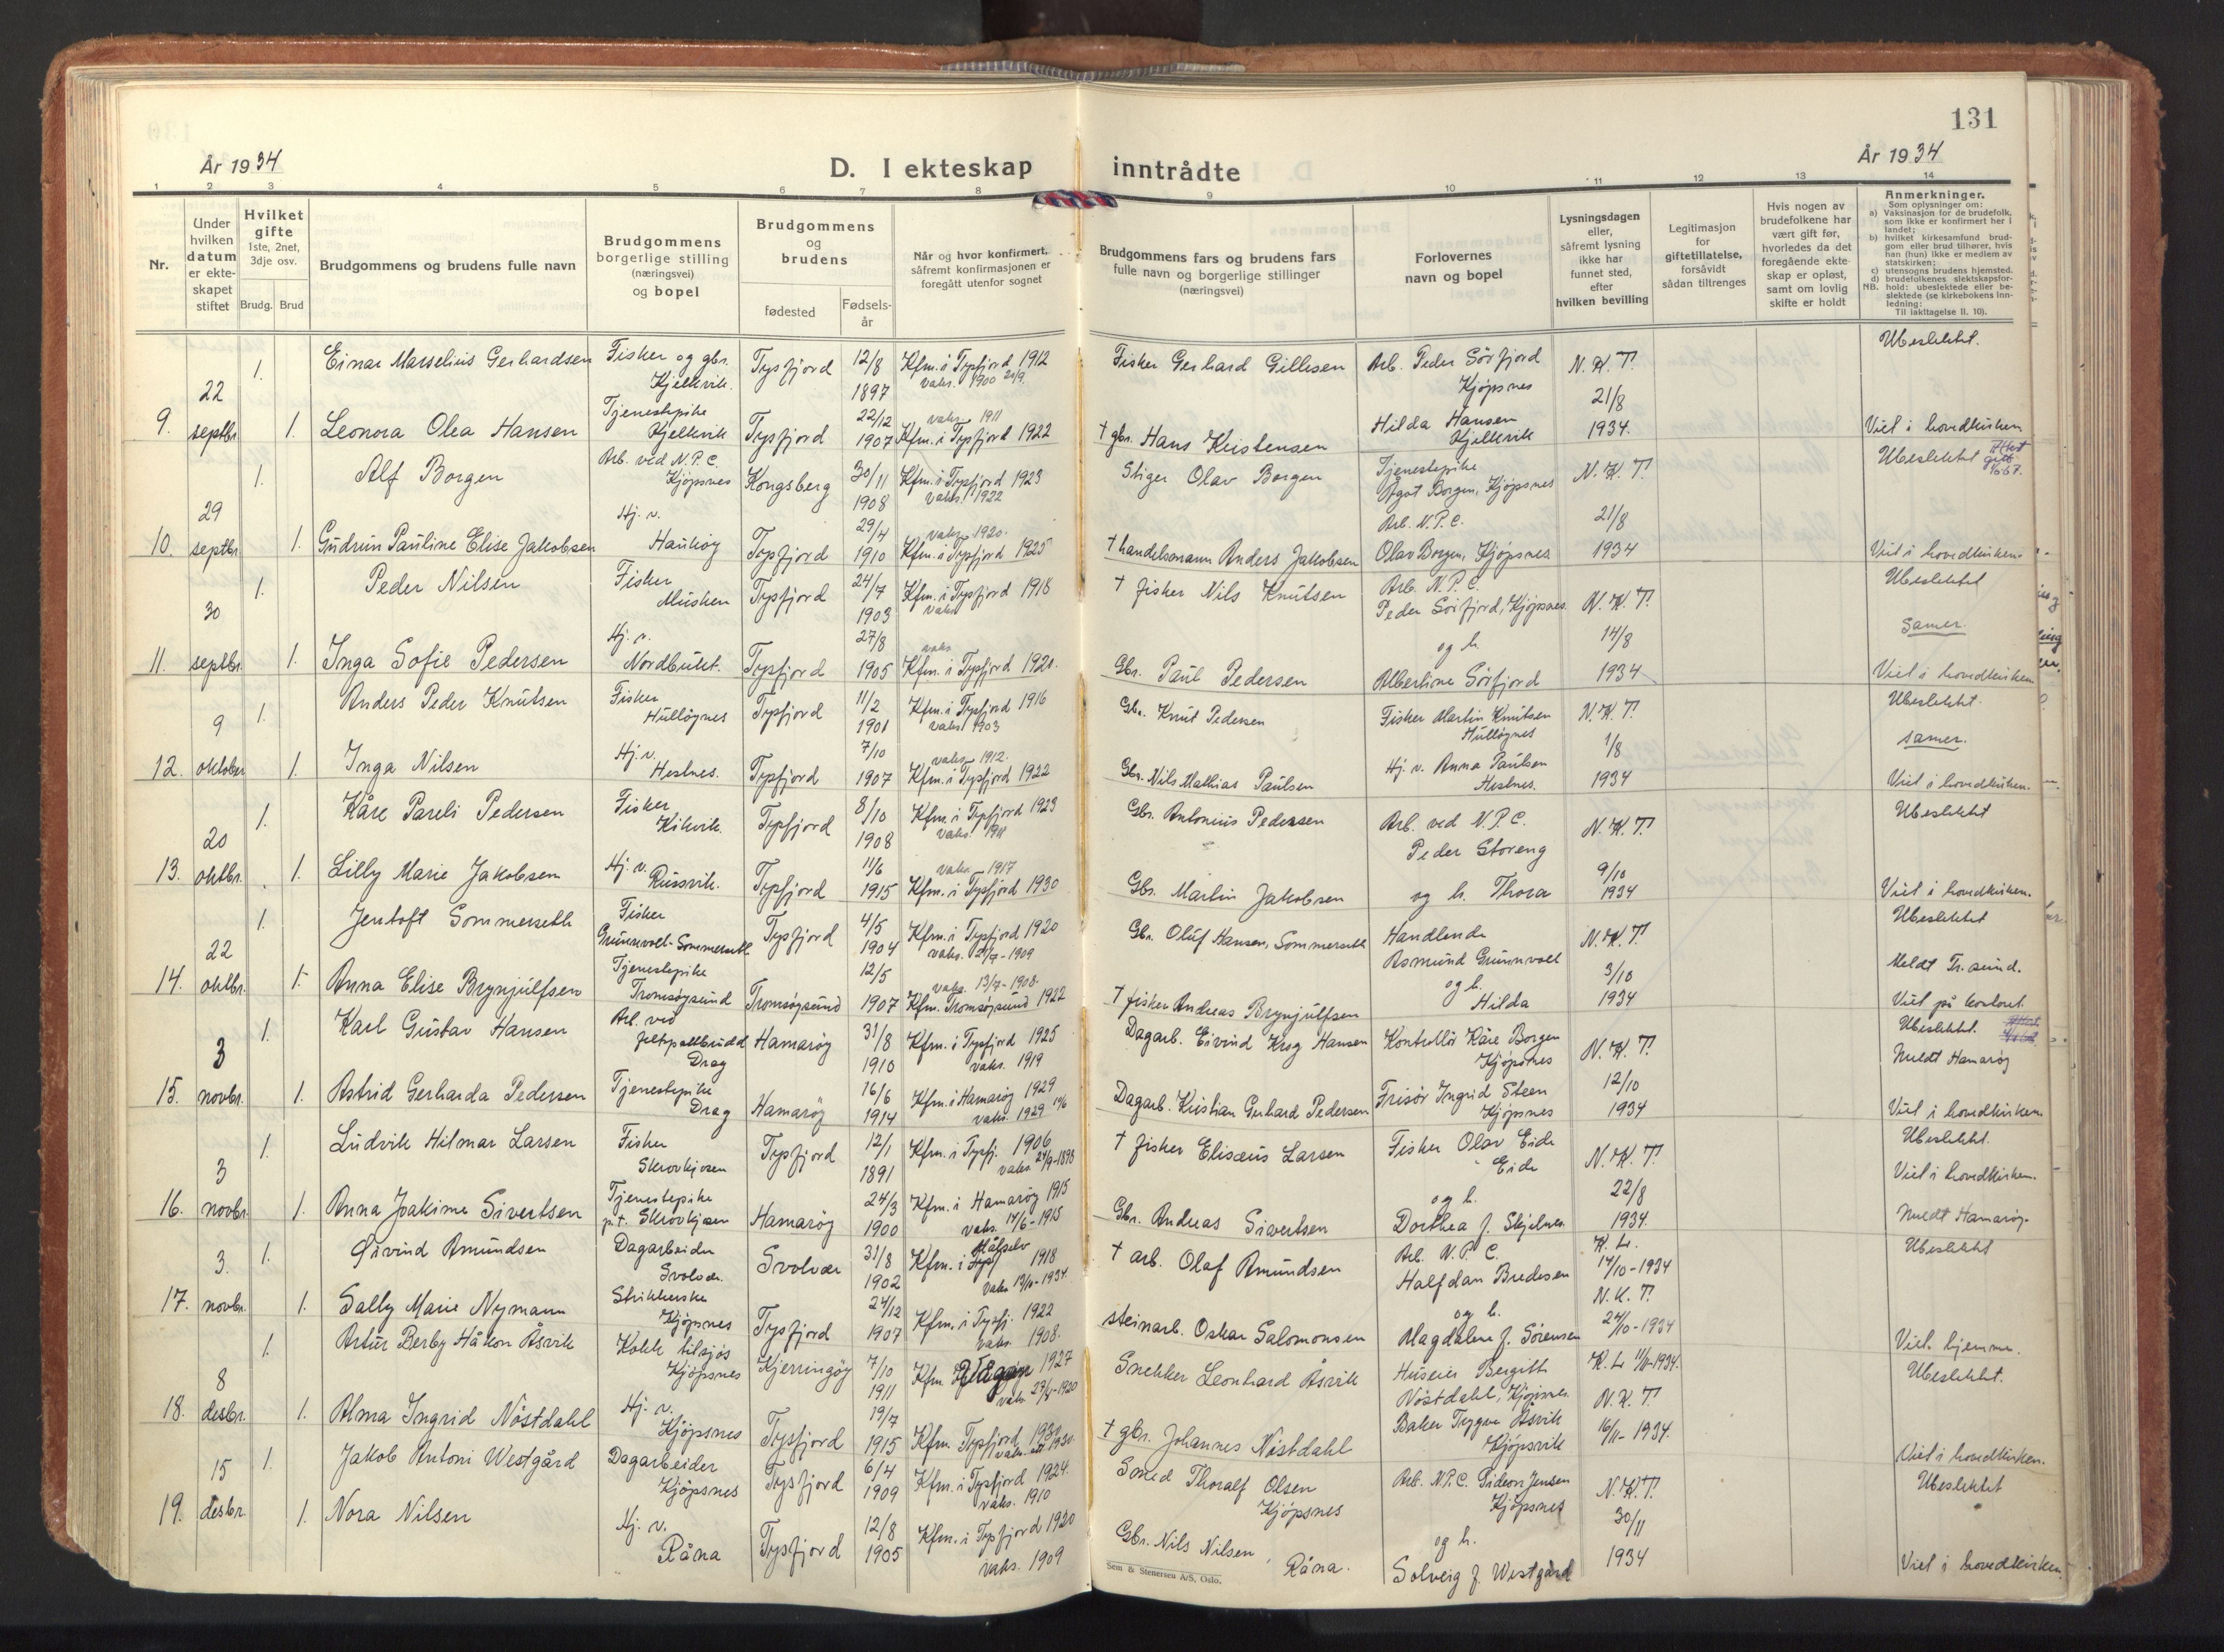 131
År 1934
D. I ekteskap inntrådte
År 1934
1 2 3 4 5 6 7 8 9 10 11 12 13 14
Nr.
Under hvilken datum er ekteskapet stiftet
Hvilket gifte 1ste, 2net, 3dje osv.
Brudg. Brud
Brudgommens og brudens fulle navn
Brudgommens borgerlige stilling (næringsvei) og bopel
Brudgommens og brudens
fødested
Fødselsår
Når og hvor konfirmert, såfremt konfirmasjonen er foregått utenfor sognet
Brudgommens fars og brudens fars fulle navn og borgerlige stillinger (næringsvei)
Forlovernes navn og bopel
Lysningsdagen eller, såfremt lysning ikke har funnet sted, efter hvilken bevilling
Legitimasjon for giftetillatelse, forsåvidt sådan tiltrenges
Hvis nogen av brudefolkene har vært gift før, hvorledes da det foregående ekteskap er opløst, samt om lovlig skifte er holdt
Anmerkninger.
Som oplysninger om:
a) Vaksinasjon for de brudefolk, som ikke er konfirmert her i landet;
b) hvilket kirkesamfund brudgom eller brud tilhører, hvis han (hun) ikke er medlem av statskirken;
c) utensogns brudens hjemsted.
d) brudefolkenes slektskapsforhold: ubeslektede eller beslektede (se kirkebokens innledning:
NB. Til iakttagelse II. 10).
9. 22 septbr. 1. Einar Marselius Gerhardsen Fisker og gbr. Kjelkvik. Tysfjord 12/8 1897 Kfm. i Tysfjord 1912 vaks. 1900 Fisker Gerhard Gillesen Arb. Peder Sörfjord Kjöpsnes N.K.T. 21/8 1934. Ubeslektet.
1. Leonora Olea Hansen Tjenestepike Kjelkvik Tysfjord 22/12 1907 vaks. 1911 Kfm. i Tysfjord 1922 † gbr. Hans Kristensen Hilda Hansen Kjelkvik Viet i hovedkirken
10. 29 septbr. 1. Alf Borgen Arb. ved N.P.C. Kjöpsnes Kongsberg 30/11 1908 Kfm. i Tysfjord 1923 vaks. 1922 Stiger Olav Borgen Tjenestepike Ågot Borgen, Kjöpsnes N.K.T. 21/8 1934 Ubeslektet
1. Gudrun Pauline Elise Jakobsen Hj. v. Haukøy Tysfjord 29/4 1910 vaks. 1920. Kfm. i Tysfjord 1925 † handelsmann Anders Jakobsen Arb. N.P.C. Olav Borgen, Kjöpsnes Viet i hovedkirken
11. 30 septbr. 1. Peder Nilsen Fisker Musken Tysfjord 24/7 1903 Kfm. i Tysfjord 1918 vaks. † fisker Nils Knutsen Arb. N.P.C. Peder Sörfjord, Kjöpsnes N.K.T. 14/8 1934 Ubeslektet
samer.
1. Inga Sofie Pedersen Hj. v. Nordbukt. Tysfjord 27/8 1905 vaks Kfm. i Tysfjord 1920. Gbr. Paul Pedersen og h. Albertine Sörfjord Viet i hovedkirken
12. 9 oktober 1. Anders Peder Knutsen Fisker Hulløynes Tysfjord 11/2 1901 Kfm. i Tysfjord 1916 vaks. 1903 Gbr. Knut Pedersen Fisker Martin Knutsen Hulløynes N.K.T. 1/8 1934 Ubeslektet.
samer.
1. Inga Nilsen Hj. v. Heslnes. Tysfjord 7/10 1907 vaks. 1912. Kfm. i Tysfjord 1922 Gbr. Nils Mathias Paulsen Hj. v. Anna Paulsen Heslnes. Viet i hovedkirken.
13. 20 oktbr. 1. Kåre Pareli Pedersen Fisker Kikvik. Tysfjord 8/10 1908 Kfm. i Tysfjord 1923 vaks. 1911 Gbr. Antonius Pedersen Arb. ved N.P.C. Peder Storeng N.K.T. 9/10 1934 Ubeslektet
1. Lilly Marie Jakobsen Hj. v. Russvik. Tysfjord 11/6 1915 vaks. 1917 Kfm. i Tysfjord 1930 Gbr. Martin Jakobsen og h. Thora Viet i hovedkirken.
14. 22 oktbr. 1. Jentoft Sommerseth Fisker Grunnvoll-Sommerseth Tysfjord 4/5 1904 Kfm. i Tysfjord 1920 vaks. 21/7-1909 Gbr. Oluf Hansen, Sommerseth Handlende Asmund Grunnvoll N.K.T. 3/10 1934 Ubeslektet
Meldt Tr.sund.
1. Anna Elise Brynjulfsen Tjenestepike Tromsøysund Tromsøysund 12/5 1907 vaks. 13/7-1908. Kfm. Tromsøysund 1922 † fisker Andreas Brynjulfsen og h. Hilda Viet på kontoret
15. 3 novbr. 1. Karl Gustav Hansen Arb. ved feltspatbrudd Drag Hamarøy 31/8 1910 Kfm. i Tysfjord 1925 vaks. 1919 Dagarb. Eivind Krog Hansen Kontrollör Kåre Borgen Kjöpsnes N.K.T. 12/10 1934 Ubeslektet.
Meldt Hamarøy
1. Astrid Gerharda Pedersen Tjenestepike Drag Hamarøy 16/6 1914 Kfm. i Hamarøy 1929 vaks. 1929 Dagarb. Kristian Gerhard Pedersen Frisör Ingrid Steen Kjöpsnes Viet i hovedkirken
16. 3 novbr. 1. Ludvik Hilmar Larsen Fisker Skrovkjosen Tysfjord 12/1 1891 Kfm. i Tysfj. 1906 vaks. 24/9-1898 † fisker Elisæus Larsen Fisker Olav Eide Eide N.K.T. 22/8 1934. Ubeslektet.
Viet i hovedkirken.
1. Anna Joakime Sivertsen Tjenestepike p.t. Skrovkjosen Hamarøy 24/3 1900 Kfm. i Hamarøy 1915 vaks. 17/6-1915 Gbr. Andreas Sivertsen og h. Dorthea f. Skjelnes Meldt Hamarøy.
17. 3. novbr. 1. Øivind Amundsen Dagarbeider Svolvær Svolvær 31/8 1902 Kfm. i Målselv 1918 vaks 13/10-1934. † arb. Olaf Amundsen Arb. N.P.C. Halfdan Bredesen K.L. 14/10-1934 Ubeslektet
1. Sally Marie Nymann Strikkerske Kjöpsnes Tysfjord 24/12 1907 Kfm. i Tysfj. 1922 vaks. 1908. steinarb. Oskar Salomonsen og h. Magdalene f. Sörensen N.K.T. 24/10-1934 Viet hjemme.
18. 8 desbr. 1. Artur Berby Håkon Åsvik Kokk tilsjös Kjöpsnes Kjerringøy 7/10 1911 Kfm. 1927 vaks 29/4-1920 Snekker Leonhard Åsvik Huseier Bergitte Nöstdahl, Kjöpsnes K.L. 11/11-1934. Ubeslektet.
1. Alma Ingrid Nöstdahl Hj. v. Kjöpsnes Tysfjord 19/7 1915 Kfm. Tysfjord 1930 vaks. att 1930. † gbr. Johannes Nöstdahl Baker Trygve Åsvik Kjöpsvik N.K.T. 16/11-1934. Viet i hovedkirken.
19. 15 desbr. 1. Jakob Antoni Westgård Dagarbeider Kjöpsnes Tysfjord 6/4 1909 Kfm. i Tysfjord 1924. vaks. 1910 Smed Thoralf Olsen Kjöpsnes Arb. N.P.C. Gideon Jensen Kjöpsnes N.K.T. 30/11 1934 Ubeslektet
1. Nora Nilsen Hj. v. Råna Tysfjord 12/8 1905 Kfm. i Tysfjord 1920 vaks. 1909 Gbr. Nils Nilsen, Råna. og h. Solveig f. Westgård Viet i hovedkirken
Sem & Stenersen A/S, Oslo.